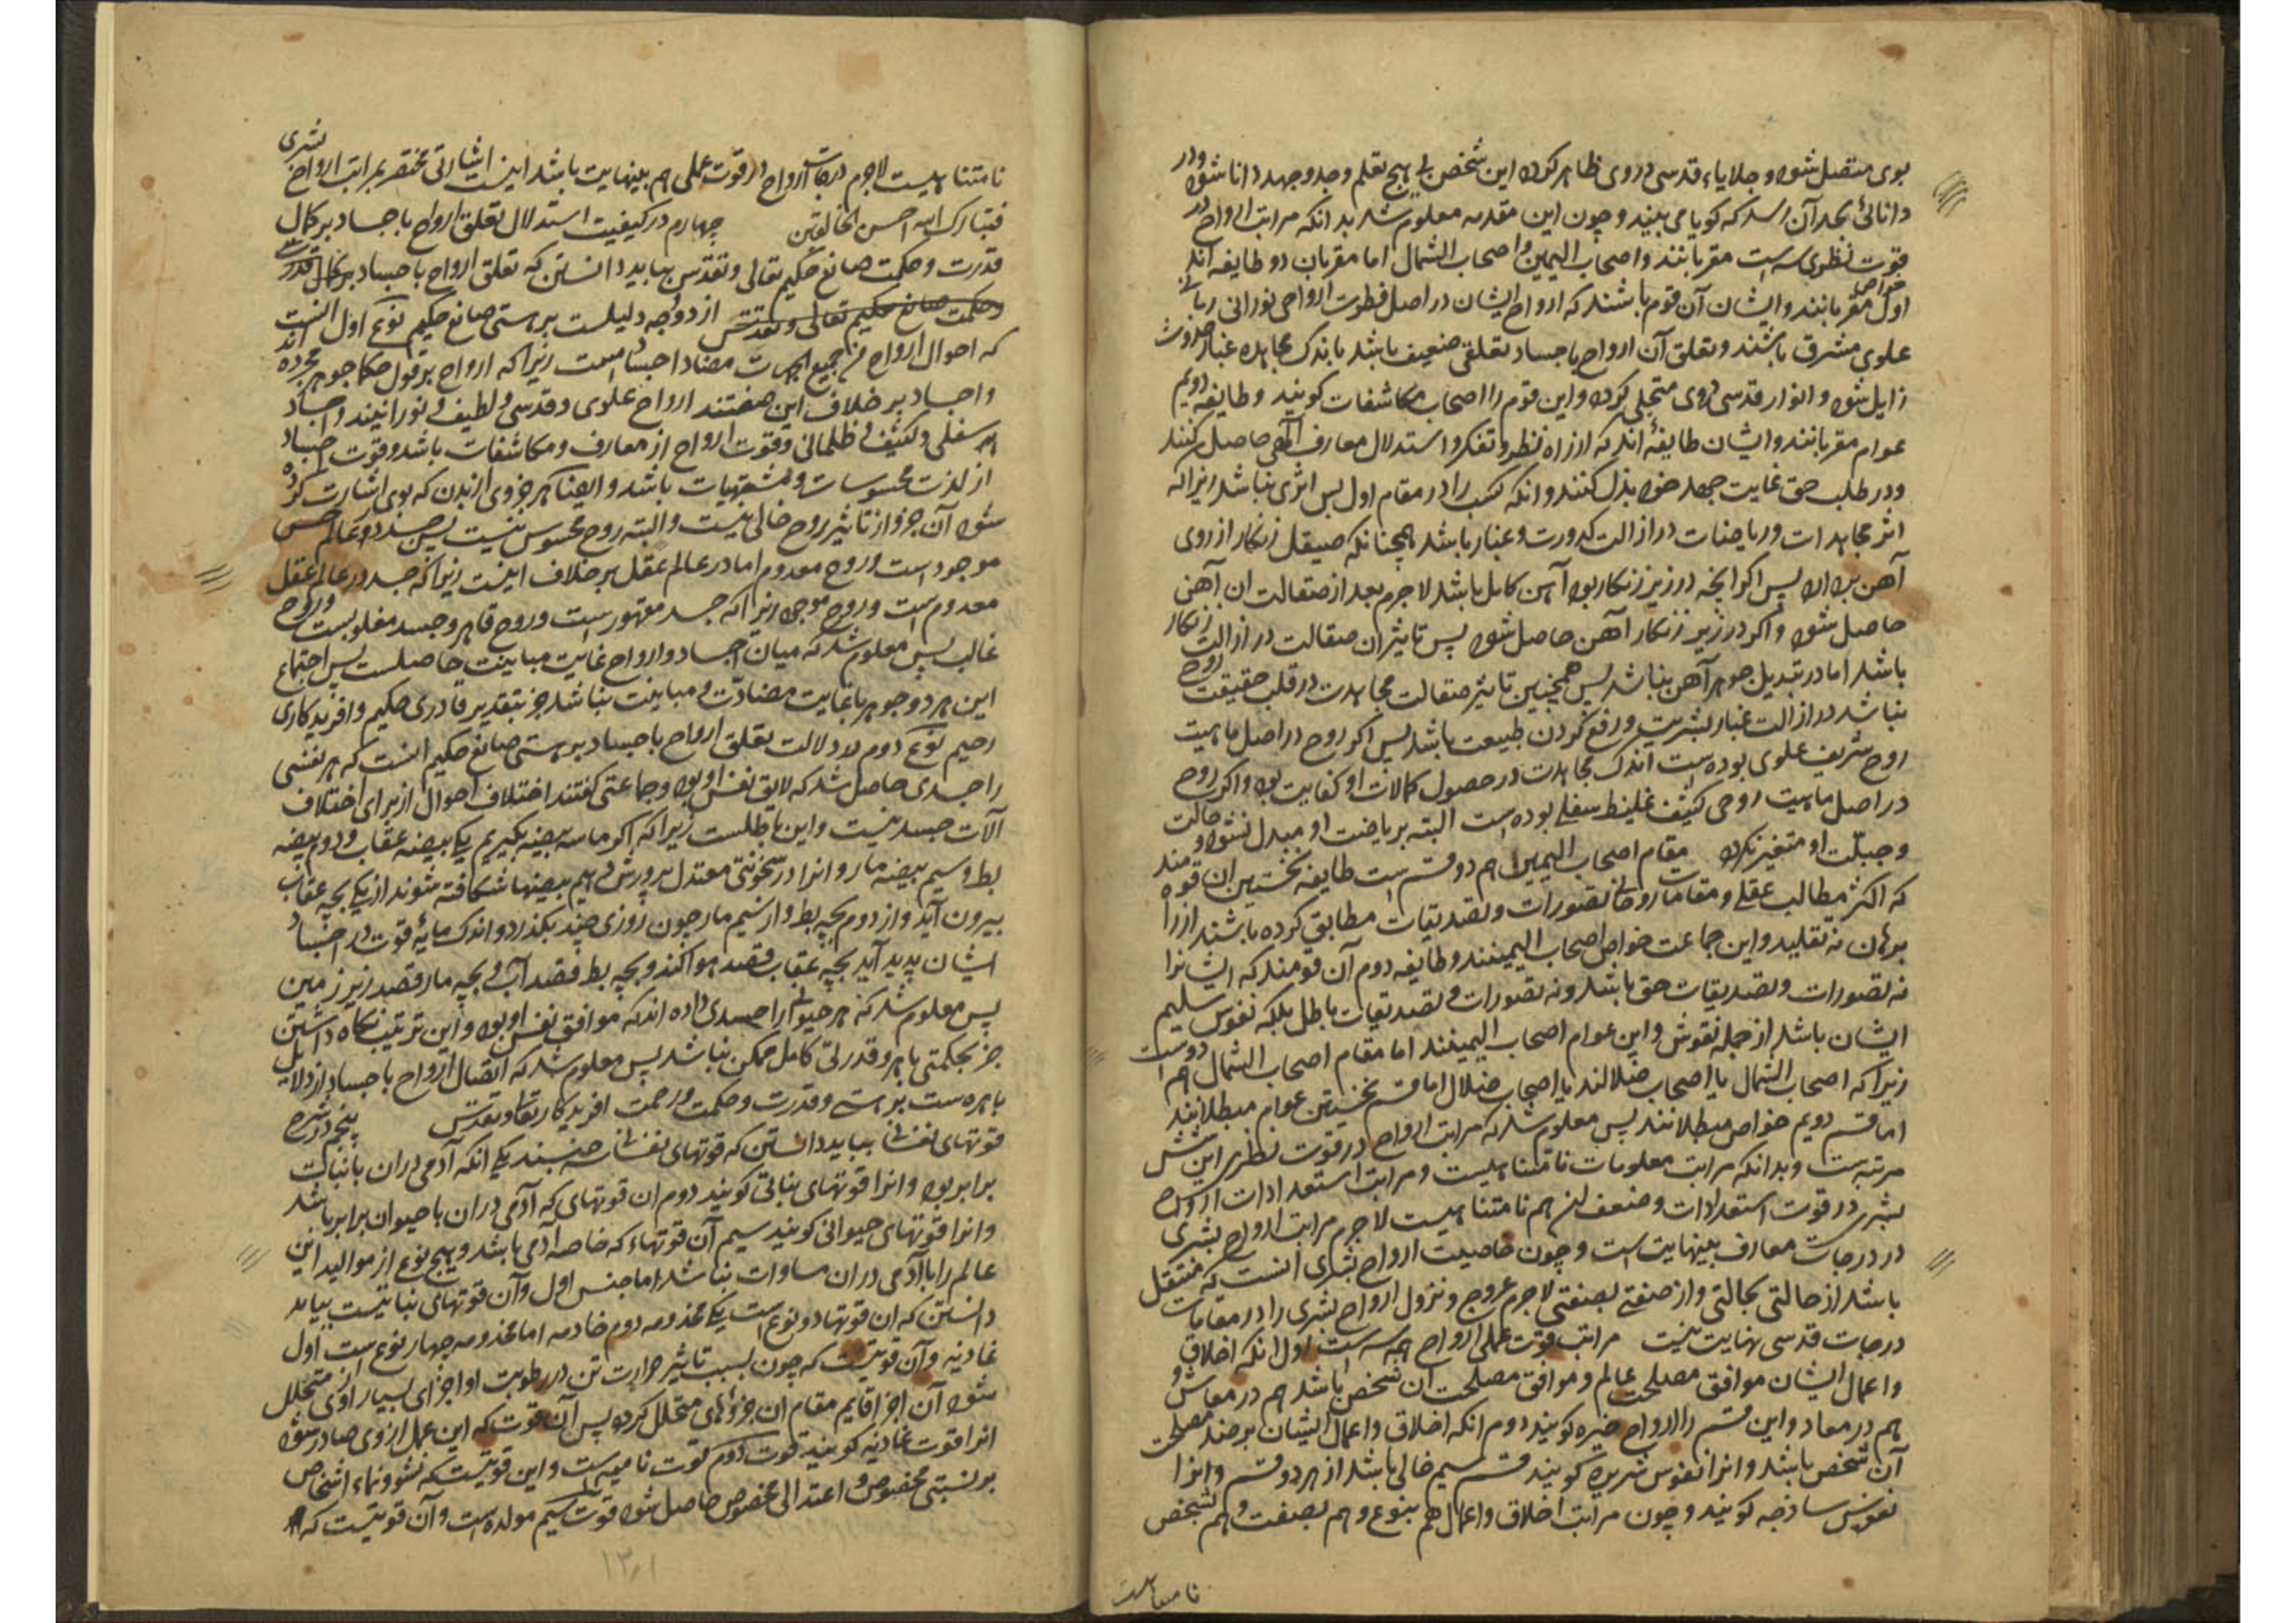 بوی متصل شود و جلایاء قدسی در وی ظاهر کردد این شخص بی هیچ تعلم وجد وجهد دانا شود ودر
دانائی بحد آن رسد که کویا می بیند و چون این مقدمه معلوم شد بدانکه مراتب ارواح در
قوت نظری سه است مقربانند واصحاب الیمین واصحاب الشمال اما مقربان دو طایفه اند
اول خواص مقربانند وایشان آن قوم باشند که ارواح ایشان در اصل فطرت ارواحی نورانی ربانی
علوی مشرق باشند وتعلق آن ارواح باجساد تعلقی ضعیف باشد باندک مجاهده غبار حدوث
زایل شود و انوار قدسی در وی متجلی کردد واین قوم را اصحاب مکاشفات کویند وطایفه دویم
عوام مقربانند وایشان طایفهٔ اند که از راه نظر وتفکر واستدلال معارف الهی حاصل کنند
ودر طلب حق غایت جهد خود بذل کنند وانکه کسب را در مقام اول بس اثری نباشد زیرا که
اثر مجاهدات وریاضات در ازالت کدورت وغبار باشد همچنانکه صیقل زنکار از روی
آهن بردارد پس اکر انچه در زیر زنکار بود آهن کامل باشد لاجرم بعد از صقالت ان آهن
حاصل شود واکر در زیر زنکار آهن حاصل شود پس تاثیر ان صقالت در ازالت زنکار
باشد اما در تبدیل جوهر آهن نباشد پس همچنین تاثیر صقالت مجاهدت در قلب حقیقت روح
نباشد در ازالت غبار بشریت ورفع کردن طبیعت باشد پس اکر روح در اصل ماهیت
روح شریف علوی بوده است اندک مجاهدت در حصول کمالات او کفایت بود واکر روح
در اصل ماهیت روحی کثیف غلیظ سفلی بوده است البته بریاضت او مبدل نشود وحالت
وجبلت او متغیر نکردد مقام اصحاب الیمین هم دو قسم است طایفه نخستین ان قومند
که اکثر مطالب عقلی ومقامات روحانی تصورات وتصدیقات مطابق کرده باشند از راه
برهان نه تقلید واین جماعت خواص اصحاب الیمینند وطایفه دوم آن قومند که ایشانرا
نه تصورات وتصدیقات حق باشد ونه تصورات وتصدیقات باطل بلکه نفوس سلیم
ایشان باشد از جمله نقوش واین عوام اصحاب الیمینند اما مقام اصحاب الشمال هم دو است
زیرا که اصحاب الشمال یا اصحاب ضلالند یا اصحاب ضلال اما قسم نخستین عوام مبطلانند
اما قسم دویم خواص مبطلانند پس معلوم شد که مراتب ارواح در قوت نظری این شش
مرتبه است وبدانکه مراتب معلومات نامتناهیست ومراتب استعدادات ارواح
بشری در قوت استعدادات وضعف ان هم نامتناهیست لاجرم مراتب ارواح بشری
در درجات معارف بینهایت است وچون خاصیت ارواح بشری انست که منتقل
باشد از حالتی بحالتی واز صفتی بصفتی لاجرم عروج ونزول ارواح بشری را در مقامات
درجات قدسی نهایت نیست مراتب قوت عملی ارواح هم سه است اول انکه اخلاق
واعمال ایشان موافق مصلحت عالم وموافق مصلحت آن شخص باشد هم در معاش و
هم در معاد واین قسم را ارواح خیره کویند دوم انکه اخلاق واعمال ایشان بر ضد مصلحت
آن شخص باشد وانرا نفوس شریره کویند قسم سیم خالی باشد از هر دو قسم وانرا
نفوس ساذجه کویند وچون مراتب اخلاق واعمال هم بنوع وهم بصفت وهم بشخص
نامتناهیست
نامتناهیست لاجرم درجات ارواح در قوت عملی هم بینهایت باشد اینست اشارتی مختصر بمراتب ارواح بشری
فتبارک الله احسن الخالقین چهارم در کیفیت استدلال تعلق ارواح باجساد بر کمال
قدرت وحکمت صانع حکیم تعالی وتقدس بباید دانستن که تعلق ارواح باجساد بر کمال قدرت
وحکمت صانع حکیم تعالی وتقدس از دو وجه دلیلست بر هستی صانع حکیم نوع اول انست
که احوال ارواح من جمیع الجهات مضاد اجسامست زیرا که ارواح بر قول حکما جوهر مجرده اند
واجساد بر خلاف این صفتند ارواح علوی وقدسی ولطیف ونورانیند واجساد
سفلی وکثیف وظلمانی وقوت ارواح از معارف ومکاشفات باشد وقوت اجساد
از لذت محسوسات ومشتهیات باشد وایضا هر جزوی از بدن که بوی اشارت کرده
شود آن جزو از تاثیر روح خالی نیست والبته روح محسوس نیست پس جسد در عالم حس
موجود است وروح معدوم اما در عالم عقل بر خلاف اینست زیرا که جسد در عالم عقل
معدوم است وروح موجود زیرا که جسد مقهور است وروح قاهر وجسد مغلوبست وروح
غالب پس معلوم شد که میان اجساد وارواح غایت مباینت حاصلست پس اجتماع
این هر دو جوهر با غایت مضادت ومباینت نباشد جز بتقدیر قادری حکیم وافریدکاری
رحیم نوع دوم در دلالت تعلق ارواح باجساد بر هستی صانع حکیم انست که هر نفسی
را جسدی حاصل شد که لایق نفس او بود وجماعتی کفتند اختلاف احوال از برای اختلاف
آلات جسد نیست واین باطلست زیرا که اکر ما سه بیضه بکیریم یکی بیضه عقاب ودوم بیضه
بط وسیم بیضه مار وانرا در سخونتی معتدل پرورش دهیم بیضها شکافته شوند از یکی بچه عقاب
بیرون آید واز دوم بچه بط واز سیم مار چون روزی چند بکذرد واندک مایهٔ قوت در اجساد
ایشان پدید آید بچه عقاب قصد هوا کند وبچه بط قصد آب وبچه مار قصد زیر زمین
پس معلوم شد که هر حیوانی را جسدی داده اند که موافق نفس او بود واین ترتیب نکاه داشتن
جز بحکمتی باهر وقدرتی کامل ممکن نباشد پس معلوم شد که اتصال ارواح باجساد از دلایل
باهره ست بر هستی وقدرت وحکمت ورحمت افریدکار تعالی وتقدس پنجم در شرح
قوتهای نفسانی بباید دانستن که قوتهای نفسانی سه جنسند یکی انکه آدمی در ان بانبات
برابر بود وانرا قوتهای نباتی کویند دوم ان قوتهای که آدمی در ان با حیوان برابر باشد
وانرا قوتهای حیوانی کویند سیم آن قوتهاء که خاصه آدمی باشد وهیچ نوع از موالید این
عالم را با آدمی در ان مساوات نباشد اما جنس اول وآن قوتهای نباتیست بباید
دانستن که ان قوتها دو نوع است یکی مخدومه دوم خادمه اما مخدومه چهار نوع ست اول
غاذیه وآن قوتیست که چون بسبب تاثیر حرارت تن در رطوبت او اجزای بسیار از وی متحلل
شود آن اجزا قایم مقام ان جزوهای متحلل کردد پس آن قوت که این عمل از وی صادر شود
انرا قوت غاذیه کویند قوت دوم قوت نامیه است واین قوتیست که نشو ونماء اشخاص
بر نسبتی مخصوص واعتدالی مخصوص حاصل شود قوت سیم مولده است وآن قوتیست که